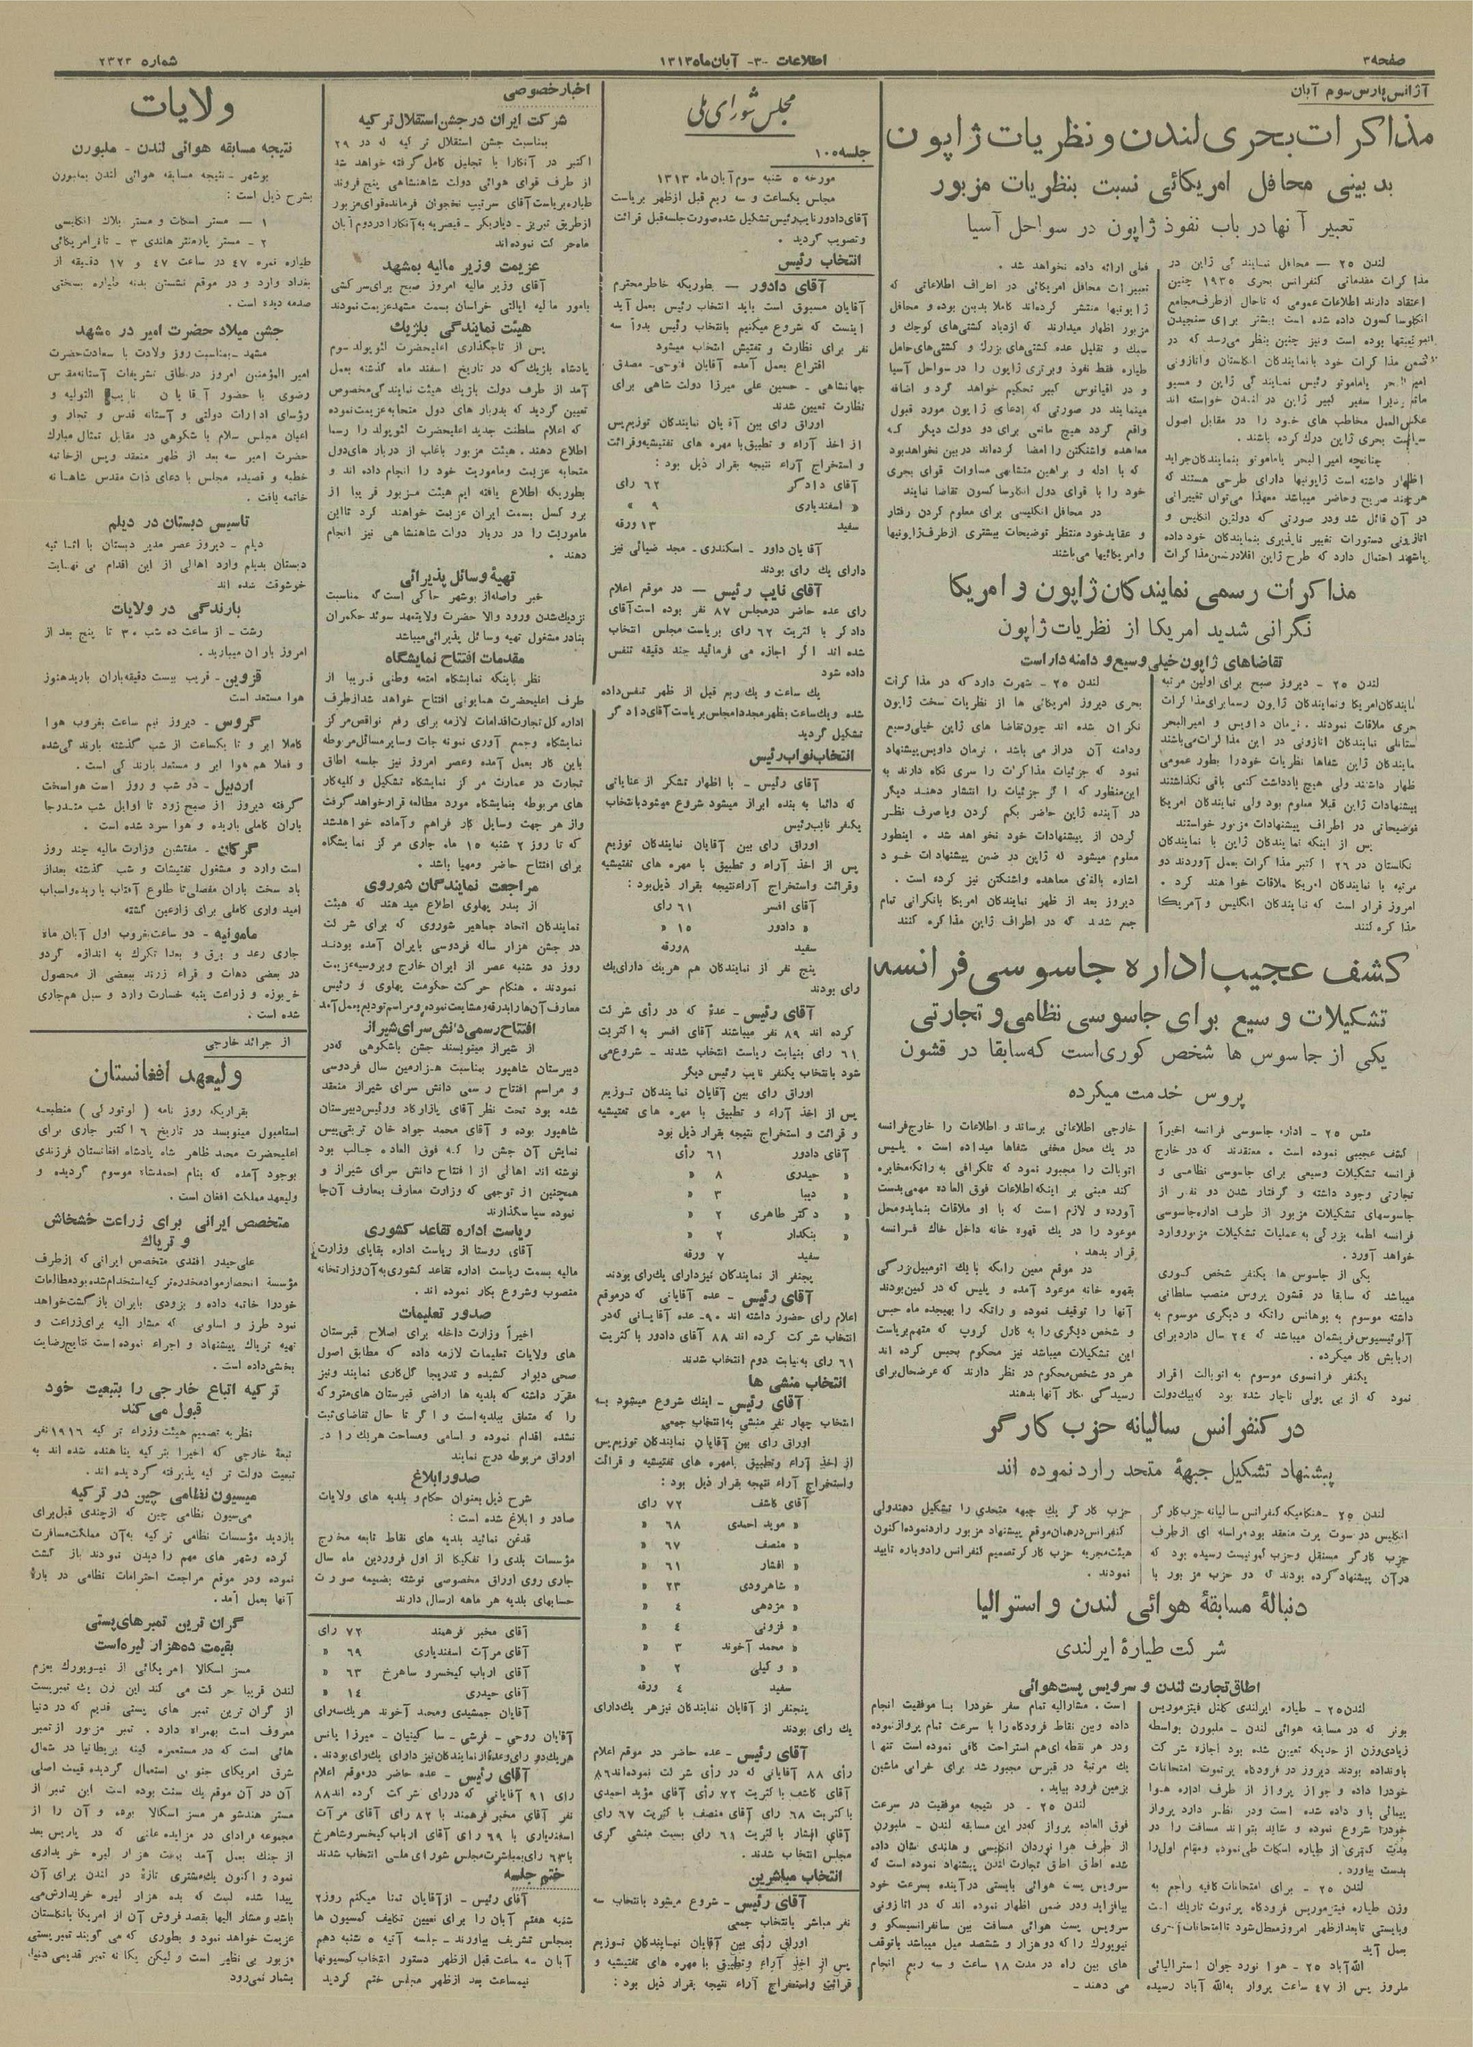 صفحه ۳
اطلاعات -۳- آبان ماه ۱۳۱۳
شماره ۲۳۲۳
آژانس پارس سوم آبان
مذاکرات بحری لندن و نظریات ژاپون
بدبینی محافل امریکائی نسبت بنظریات مزبور
تعبیر آنها در باب نفوذ ژاپون در سواحل آسیا
لندن ۲۵ — محافل نمایندگی ژاپن در
مذاکرات مقدماتی کنفرانس بحری ۱۹۳۵ چنین
اعتقاد دارند اطلاعات عمومی که تاحال از طرف مجامع
انکلوساکسون داده شده است بیشتر برای سنجیدن
چنانچه امیرالبحر یاماموتو بنمایندگان جراید
اظهار داشته است ژاپونیها دارای طرحی هستند که
هرچند صریح و حاضر میباشد معهذا می‌توان تغییراتی
در آن قائل شد ودر صورتی که دولتین انکلیس و
اتازونی دستورات تغییر ناپذیری بنمایندگان خود داده
باشند احتمال دارد که طرح ژاپن اقلا در ضمن مذاکرات
فعلی ارائه داده نخواهد شد .
تعبیرات محافل امریکائی در اطراف اطلاعاتی که
ژاپونیها منتشر کرده‌اند کاملا بدبین بوده و محافل
مزبور اظهار میدارند که ازدیاد کشتی‌های کوچك و
سبك و تقلیل عده کشتی‌های بزرك و کشتی‌های حامل
طیاره فقط نفوذ و برتری ژاپون را در سواحل آسیا
و در اقیانوس کبیر تحکیم خواهد کرد و اضافه
مینمایند در صورتی که ادعای ژاپون مورد قبول
واقع گردد هیچ مانعی برای دو دولت دیگر که
معاهده واشنگتن را امضا کرده‌اند در بین نخواهد بود
که با ادله و براهین متشابهی مساوات قوای بحری
خود را با قوای دول انکلوساکسون تقاضا نمایند
در محافل انکلیسی برای معلوم کردن رفتار
و عقاید خود منتظر توضیحات بیشتری از طرف ژاپونیها
و امریکائیها می‌باشند
مذاکرات رسمی نمایندگان ژاپون و امریکا
نگرانی شدید امریکا از نظریات ژاپون
تقاضاهای ژاپون خیلی وسیع و دامنه دار است
لندن ۲۵ - دیروز صبح برای اولین مرتبه
نمایندگان امریکا ونمایندگان ژاپون رسما برای مذاکرات
بحری ملاقات نمودند . نرمان داویس و امیرالبحر
پس از اینکه نمایندگان ژاپن با نمایندگان
انگلستان در ۲۶ اکتبر مذاکرات بعمل آوردند دو
مرتبه با نمایندگان امریکا ملاقات خواهند کرد .
امروز قرار است که نمایندگان انگلیس و آمریکا
مذاکره کنند
لندن ۲۵ - شهرت دارد که در مذاکرات
بحری دیروز امریکائی ها از نظریات سخت ژاپون
نگران شده اند چون تقاضاهای ژاپن خیلی وسیع
ودامنه آن دراز می باشد . نرمان داویس پیشنهاد
نمود که جزئیات مذاکرات را سری نگاه دارند به
این منظور که اگر جزئیات را انتشار دهند دیگر
در آینده ژاپن حاضر بکم کردن ویا صرف نظر
کردن از پیشنهادات خود نخواهد شد . اینطور
معلوم میشود که ژاپن در ضمن پیشنهادات خود
اشاره بالغای معاهده واشنگتن نیز کرده است .
دیروز بعد از ظهر نمایندگان امریکا بانگرانی تمام
جمع شدند که در اطراف ژاپن مذاکره کنند
کشف عجیب اداره جاسوسی فرانسه
تشکیلات وسیع برای جاسوسی نظامی و تجارتی
یکی از جاسوس ها شخص کوری است که سابقا در قشون
پروس خدمت میکرده
متس ۲۵ - اداره جاسوسی فرانسه اخیراً
کشف عجیبی نموده است . معتقدند که در خارج
فرانسه تشکیلات وسیعی برای جاسوسی نظامی و
تجارتی وجود داشته و گرفتار شدن دو نفر از
جاسوسهای تشکیلات مزبور از طرف اداره جاسوسی
فرانسه لطمه بزرگی به عملیات تشکیلات مزبور وارد
خواهد آورد .
یکی از جاسوس ها یکنفر شخص کوری
میباشد که سابقا در قشون پروس منصب سلطانی
داشته موسوم به یوهانس رانکه و دیگری موسوم به
آلوئیسیوس فریشمان میباشد که ۲۴ سال دارد برای
اربابش کار میکرده .
یکنفر فرانسوی موسوم به اتوبالت اقرار
نمود که از بی پولی ناچار شده بود که بیك دولت
خارجی اطلاعاتی برساند و اطلاعات را خارج فرانسه
در یك محل مخفی شفاها میداده است . پلیس
اتوبالت را مجبور نمود که تلگرافی به رانکه مخابره
کند مبنی بر اینکه اطلاعات فوق العاده مهمی بدست
آورده و لازم است که با او ملاقات بنماید و محل
موعود را در یك قهوه خانه داخل خاك فرانسه
قرار بدهد .
در موقع معین رانکه با یك اتومبیل بزرگی
بقهوه خانه موعود آمده و پلیس که در کمین بودند
آنها را توقیف نموده و رانکه را بهیجده ماه حبس
و شخص دیگری را به کارل کروپ که متهم بریاست
این تشکیلات میباشد نیز محکوم بحبس کرده اند
هر دو شخص محکوم در نظر دارند که عرضحال برای
رسیدگی بکار آنها بدهند
در کنفرانس سالیانه حزب کارگر
پیشنهاد تشکیل جبهۀ متحد را رد نموده اند
لندن ۲۵ - هنگامیکه کنفرانس سالیانه حزب کارگر
انکلیس در سوت پرت منعقد بود مراسله ای از طرف
حزب کارگر مستقل و حزب کمونیست رسیده بود که
در آن پیشنهاد کرده بودند که دو حزب مزبور با
حزب کارگر یك جبهه متحدی را تشکیل دهند ولی
کنفرانس در همان موقع پیشنهاد مزبور را رد نموده اکنون
هیئت مجریه حزب کارگر تصمیم کنفرانس را دوباره تایید
نمودند .
دنبالۀ مسابقۀ هوائی لندن و استرالیا
شرکت طیارۀ ایرلندی
اطاق تجارت لندن و سرویس پست هوائی
لندن ۲۵ - طیاره ایرلندی کلنل فیتزموریس
بونر که در مسابقه هوائی لندن - ملبورن بواسطه
زیادی وزن از حدیکه تعیین شده بود اجازه شرکت
باو نداده بودند دیروز در فرودگاه پرتموت امتحانات
خود را داده و جواز پرواز از طرف اداره هوا
پیمائی باو داده شده است ودر نظر دارد پرواز
خود را شروع نموده و شاید بتواند مسافت را در
مدت کمتری از طیاره اسکات طی نموده و مقام اول را
بدست بیاورد .
لندن ۲۵ - برای امتحانات کافیه راجع به
وزن طیاره فیتزموریس فرودگاه پرتموت تاریك است
وبایستی تا بعد از ظهر امروز معطل شود تا امتحانات آخری
بعمل آید
الله آباد ۲۵ - هوا نورد جوان استرالیائی
ملروز پس از ۴۷ ساعت پرواز به الله آباد رسیده
است . مشارالیه تمام سفر خود را با موفقیت انجام
داده وبین نقاط فرودگاه را با سرعت تمام پرواز نموده
ودر هر نقطه‌ای هم استراحت کافی نموده است تنها
یك مرتبه در قبرس مجبور شد برای خرابی ماشین
بزمین فرود بیاید .
لندن ۲۵ - در نتیجه موفقیت در سرعت
فوق العاده پرواز که در این مسابقه لندن - ملبورن
از طرف هوا نوردان انکلیسی و هلندی نشان داده
شده اطاق تجارت لندن پیشنهاد نموده است که
سرویس پست هوائی بایستی در آینده بسرعت خود
بیافزاید ودر ضمن اظهار نموده اند که در اتازونی
سرویس پست هوائی مسافت بین سانفرانسیسکو و
نیویورك را که دو هزار و ششصد میل میباشد با توقف
های بین راه در مدت ۱۸ ساعت و سه ربع انجام
می دهند -
مجلس شورای ملی
جلسه ۱۰۰
مورخه ۵ شنبه سوم آبان ماه ۱۳۱۳
مجلس یکساعت و سه ربع قبل از ظهر بریاست
آقای دادور نایب رئیس تشکیل شده صورت جلسه قبل قرائت
و تصویب گردید .
انتخاب رئیس
آقای دادور - بطوریکه خاطر محترم
آقایان مسبوق است باید انتخاب رئیس بعمل آید
اینست که شروع میکنیم بانتخاب رئیس بدواً سه
نفر برای نظارت و تفتیش انتخاب میشود
اقتراع بعمل آمده آقایان فتوحی - مصدق
جهانشاهی - حسین علی میرزا دولت شاهی برای
نظارت تعیین شدند
اوراق رای بین آقایان نمایندگان توزیع پس
از اخذ آراء و تطبیق با مهره های تفتیشیه و قرائت
و استخراج آراء نتیجه بقرار ذیل بود :
آقای دادگر ۶۲ رای
« اسفندیاری ۹ «
سفید ۱۳ ورقه
آقایان داور - اسکندری - مجد ضیائی نیز
دارای یك رای بودند
آقای نایب رئیس — در موقع اعلام
رای عده حاضر در مجلس ۸۷ نفر بوده است آقای
دادگر با کثریت ۶۲ رای بریاست مجلس انتخاب
شده اند اگر اجازه می فرمائید چند دقیقه تنفس
داده شود
یك ساعت و یك ربع قبل از ظهر تنفس داده
شده و یك ساعت بظهر مجددا مجلس بریاست آقای دادگر
تشکیل گردید
انتخاب نواب رئیس
آقای رئیس - با اظهار تشکر از عنایاتی
که دائما به بنده ابراز میشود شروع میشود بانتخاب
یکنفر نایب رئیس
اوراق رای بین آقایان نمایندگان توزیع
پس از اخذ آراء و تطبیق با مهره های تفتیشیه
وقرائت واستخراج آراء نتیجه بقرار ذیل بود :
آقای افسر ۶۱ رای
« دادور ۱۵ «
سفید ۸ ورقه
پنج نفر از نمایندگان هم هریك دارای یك
رای بودند
آقای رئیس - عدۀ که در رأی شرکت
کرده اند ۸۹ نفر میباشند آقای افسر به اکثریت
۶۱ رای بنیابت ریاست انتخاب شدند - شروع می
شود بانتخاب یکنفر نایب رئیس دیگر
اوراق رای بین آقایان نمایندگان توزیع
پس از اخذ آراء و تطبیق با مهره های تفتیشیه
و قرائت و استخراج نتیجه بقرار ذیل بود
آقای دادور ۶۱ رأی
« حیدری ۸ «
« دیبا ۳ «
« دکتر طاهری ۲ «
« بنکدار ۲ «
سفید ۷ ورقه
پنجنفر از نمایندگان نیز دارای یك رای بودند
آقای رئیس - عده آقایانی که در موقع
اعلام رای حضور داشته اند ۹۰ - عده آقایانی که در
انتخاب شرکت کرده اند ۸۸ آقای دادور با کثریت
۶۱ رای به نیابت دوم انتخاب شدند
انتخاب منشی ها
آقای رئیس - اینك شروع میشود به
انتخاب چهار نفر منشی به انتخاب جمعی
اوراق رای بین آقایان نمایندگان توزیع پس
از اخذ آراء وتطبیق با مهره های تفتیشیه و قرائت
واستخراج آراء نتیجه بقرار ذیل بود :
آقای کاشف ۷۲ رای
« موید احمدی ۶۸ «
« منصف ۶۷ «
« افشار ۶۱ «
« شاهرودی ۲۳ «
« مزدهی ۴ «
« فزونی ۴ «
« محمد آخوند ۳ «
« وکیلی ۲ «
سفید ۴ ورقه
پنجنفر از آقایان نمایندگان نیز هر یك دارای
یك رای بودند
آقای رئیس - عده حاضر در موقع اعلام
رای ۸۸ آقایانی که در رأی شرکت نموده اند ۸۶
آقای کاشف با کثریت ۷۲ رأی آقای مؤید احمدی
با کثریت ۶۸ رای آقای منصف با کثریت ۶۷ رای
آقای افشار با کثریت ۶۱ رای بسمت منشی گری
مجلس انتخاب شدند .
انتخاب مباشرین
آقای رئیس - شروع میشود بانتخاب سه
نفر مباشر بانتخاب جمعی
اوراق رأی بین آقایان نمایندگان توزیع
پس از اخذ آراء وتطبیق با مهره های تفتیشیه و
قرائت واستخراج آراء نتیجه بقرار ذیل بود :
اخبار خصوصی
شرکت ایران در جشن استقلال ترکیه
بمناسبت جشن استقلال ترکیه که در ۲۹
اکتبر در آنکارا با تجلیل کامل گرفته خواهد شد
از طرف قوای هوائی دولت شاهنشاهی پنج فروند
طیاره بریاست آقای سرتیپ نخجوان فرمانده قوای مزبور
از طریق تبریز - دیاربکر - قیصریه به آنکارا در دوم آبان
ماه حرکت نموده اند
عزیمت وزیر مالیه بمشهد
آقای وزیر مالیه امروز صبح برای سرکشی
بامور مالیه ایالتی خراسان بسمت مشهد عزیمت نمودند
هیئت نمایندگی بلژیك
پس از تاجگذاری اعلیحضرت لئوپولد سوم
پادشاه بلژیك که در تاریخ اسفند ماه گذشته بعمل
آمد از طرف دولت بلژیك هیئت نمایندگی مخصوص
تعیین گردید که بدربار های دول متحابه عزیمت نموده
که اعلام سلطنت جدید اعلیحضرت لئوپولد را رسما
اطلاع دهند . هیئت مزبور باغلب از دربار های دول
متحابه عزیمت و ماموریت خود را انجام داده اند و
بطوریکه اطلاع یافته ایم هیئت مزبور قریبا از
بروکسل بسمت ایران عزیمت خواهند کرد تا این
ماموریت را در دربار دولت شاهنشاهی نیز انجام
دهند .
تهیۀ وسائل پذیرائی
خبر واصله از بوشهر حاکی است که بمناسبت
نزدیك شدن ورود والا حضرت ولایتعهد سوئد حکمران
بنادر مشغول تهیه وسائل پذیرائی میباشد
مقدمات افتتاح نمایشگاه
نظر باینکه نمایشگاه امتعه وطنی قریبا از
طرف اعلیحضرت همایونی افتتاح خواهد شد از طرف
اداره کل تجارت اقدامات لازمه برای رفع نواقص مرکز
نمایشگاه وجمع آوری نمونه جات وسایر مسائل مربوطه
باین کار بعمل آمده وعصر امروز نیز جلسه اطاق
تجارت در عمارت مرکز نمایشگاه تشکیل و کلیه کار
های مربوطه بنمایشگاه مورد مطالعه قرار خواهد گرفت
واز هر جهت وسایل کار فراهم وآماده خواهد شد
که تا روز ۲ شنبه ۱۵ ماه جاری مرکز نمایشگاه
برای افتتاح حاضر ومهیا باشد .
مراجعت نمایندگان شوروی
از بندر پهلوی اطلاع میدهند که هیئت
نمایندگان اتحاد جماهیر شوروی که برای شرکت
در جشن هزار ساله فردوسی بایران آمده بودند
روز دو شنبه عصر از ایران خارج وبروسیه عزیمت
نمودند . هنگام حرکت حکومت پهلوی و رئیس
معارف آن‌ها را بدرقه و مشایعت نموده و مراسم تودیع بعمل آمد
افتتاح رسمی دانش سرای شیراز
از شیراز مینویسند جشن باشکوهی که در
دبیرستان شاهپور بمناسبت هزارمین سال فردوسی
و مراسم افتتاح رسمی دانش سرای شیراز منعقد
شده بود تحت نظر آقای یازارگاد ورئیس دبیرستان
شاهپور بوده و آقای محمد جواد خان تربتی پیس
نمایش آن جشن را که فوق العاده جالب بود
نوشته اند اهالی از افتتاح دانش سرای شیراز و
همچنین از توجهی که وزارت معارف بمعارف آن‌جا
نموده سپاسگذارند
ریاست اداره تقاعد کشوری
آقای روستا از ریاست اداره بقایای وزارت
مالیه بسمت ریاست اداره تقاعد کشوری به آن وزارتخانه
منصوب وشروع بکار نموده اند .
صدور تعلیمات
اخیراً وزارت داخله برای اصلاح قبرستان
های ولایات تعلیمات لازمه داده که مطابق اصول
صحی دیوار کشیده و تدریجا گل کاری نمایند ونیز
مقرر داشته که بلدیه ها اراضی قبرستان های متروکه
را که متعلق ببلدیه است و اگر تا حال تقاضای ثبت
نشده اقدام نموده و اسامی ومساحت هریك را در
اوراق مربوطه درج نمایند
صدور ابلاغ
شرح ذیل بعنوان حکام و بلدیه های ولایات
صادر و ابلاغ شده است :
قدغن نمائید بلدیه های نقاط تابعه مخارج
مؤسسات بلدی را تفکیکا از اول فروردین ماه سال
جاری روی اوراق مخصوصی نوشته بضمیمه صورت
حسابهای بلدیه هر ماهه ارسال دارند
آقای مخبر فرهمند ۷۲ رای
آقای مرآت اسفندیاری ۶۹ «
آقای ارباب کیخسرو شاهرخ ۶۳ «
آقای حیدری ۱۴ «
آقایان جمشیدی ومحمد آخوند هریك سه رای
آقایان روحی - فرشی - ساکینیان - میرزا یانس
هریك دو رای وعدۀ از نمایندگان نیز دارای یك رای بودند .
آقای رئیس - عده حاضر در موقع اعلام
رای ۹۱ آقایانی که در رای شرکت کرده اند ۸۸
نفر آقای مخبر فرهمند با ۸۲ رای آقای مرآت
اسفندیاری با ۶۹ رای آقای ارباب کیخسرو شاهرخ
با ۶۳ رای بمباشرت مجلس شورای ملی انتخاب شدند
ختم جلسه
آقای رئیس - از آقایان تمنا میکنم روز ۲
شنبه هفتم آبان را برای تعیین تکلیف کمسیون ها
بمجلس تشریف بیاورند - جلسه آتیه ۵ شنبه دهم
آبان سه ساعت قبل از ظهر دستور انتخاب کمسیونها
نیمساعت بعد از ظهر مجلس ختم گردید
ولایات
نتیجه مسابقه هوائی لندن - ملبورن
بوشهر - نتیجه مسابقه هوائی لندن بملبورن
بشرح ذیل است :
۱ — مستر اسکات و مستر بلاك انکلیسی
۲ - مستر پارمنتر هلندی ۳ - تافر امریکائی
طیاره نمره ۴۷ در ساعت ۴۷ و ۱۷ دقیقه از
بغداد وارد و در موقع نشستن بدنه طیاره بسختی
صدمه دیده است .
جشن میلاد حضرت امیر در مشهد
مشهد - بمناسبت روز ولادت با سعادت حضرت
امیر المؤمنین امروز در طاق تشریفات آستانه مقدس
رضوی با حضور آقایان نایب التولیه و
رؤسای ادارات دولتی و آستانه قدس و تجار و
اعیان مجلس سلام با شکوهی در مقابل تمثال مبارك
حضرت امیر سه بعد از ظهر منعقد وپس از خاتمه
خطبه و قصیده مجلس با دعای ذات مقدس شاهانه
خاتمه یافت .
تاسیس دبستان در دیلم
دیلم - دیروز عصر مدیر دبستان با اثاثیه
دبستان بدیلم وارد اهالی از این اقدام بی نهایت
خوشوقت شده اند
بارندگی در ولایات
رشت - از ساعت ده شب ۳۰ تا پنج بعد از
امروز باران میبارید .
قزوین - قریب بیست دقیقه باران بارید هنوز
هوا مستعد است
گروس - دیروز نیم ساعت بغروب هوا
کاملا ابر و تا یکساعت از شب گذشته بارندگی شده
و فعلا هم هوا ابر و مستعد بارندگی است .
اردبیل - دو شب و روز است هوا سخت
گرفته دیروز از صبح زود تا اوایل شب متدرجا
باران کاملی باریده و هوا سرد شده است .
گرگان - مفتشین وزارت مالیه چند روز
است وارد و مشغول تفتیشات و شب گذشته بعد از
باد سخت باران مفصلی تا طلوع آفتاب باریده واسباب
امید واری کاملی برای زارعین گشته
مامونیه - دو ساعت بغروب اول آبان ماه
جاری رعد و برق و بعدا تگرك به اندازه گردو
در بعضی دهات و قراء زرند ببعضی از محصول
خربوزه و زراعت پنبه خسارت وارد و سیل هم جاری
شده است .
از جرائد خارجی
ولیعهد افغانستان
بقراریکه روز نامه ( اوتورلی ) منطبعه
استامبول مینویسد در تاریخ ۶ اکتبر جاری برای
اعلیحضرت محمد ظاهر شاه پادشاه افغانستان فرزندی
بوجود آمده که بنام احمدشاه موسوم گردیده و
ولیعهد مملکت افغان است .
متخصص ایرانی برای زراعت خشخاش
و تریاك
علی حیدر افندی متخصص ایرانی که از طرف
مؤسسۀ انحصار مواد مخدره ترکیه استخدام شده بود مطالعات
خود را خاتمه داده و بزودی بایران باز گشت خواهد
نمود طرز و اسلوبی که مشار الیه برای زراعت و
تهیه تریاك پیشنهاد و اجراء نموده است نتایج رضایت
بخشی داده است .
ترکیه اتباع خارجی را بتبعیت خود
قبول می کند
نظر به تصمیم هیئت وزراء ترکیه ۱۹۱۶ نفر
تبعۀ خارجی که اخیراً بترکیه پناهنده شده اند به
تبعیت دولت ترکیه پذیرفته گردیده اند .
میسیون نظامی چین در ترکیه
میسیون نظامی چین که از چندی قبل برای
بازدید مؤسسات نظامی ترکیه به آن مملکت مسافرت
کرده وشهر های مهم را دیدن نمودند باز گشت
نموده ودر موقع مراجعت احترامات نظامی در بارۀ
آنها بعمل آمد .
گران ترین تمبرهای پستی
بقیمت ده هزار لیره است
مسز اسکالا امریکائی از نیویورك بعزم
لندن قریبا حرکت می کند این زن یك تمبر پست
از گران ترین تمبر های پستی قدیم که در دنیا
معروف است بهمراه دارد . تمبر مزبور از تمبر
هائی است که در مستعمره گینه بریطانیا در شمال
شرق امریکای جنوبی استعمال گردیده قیمت اصلی
آن در آن موقع یك سنت بوده است این تمبر از
مستر هندشو هر مسز اسکالا بوده و آن را از
مجموعه فراداى در مزایده علنی که در پاریس بعد
از جنك بعمل آمد بهفت هزار لیره خریداری
نمود و اکنون یك مشتری تازۀ در لندن برای آن
پیدا شده است که بده هزار لیره خریدارش می
باشد و مشار الیها بقصد فروش آن از امریکا بانگلستان
عزیمت خواهد نمود و بطوری که می گویند تمبر پستی
مزبور بی نظیر است و لیکن یگانه تمبر قدیمی دنیا
بشمار نمی‌رود